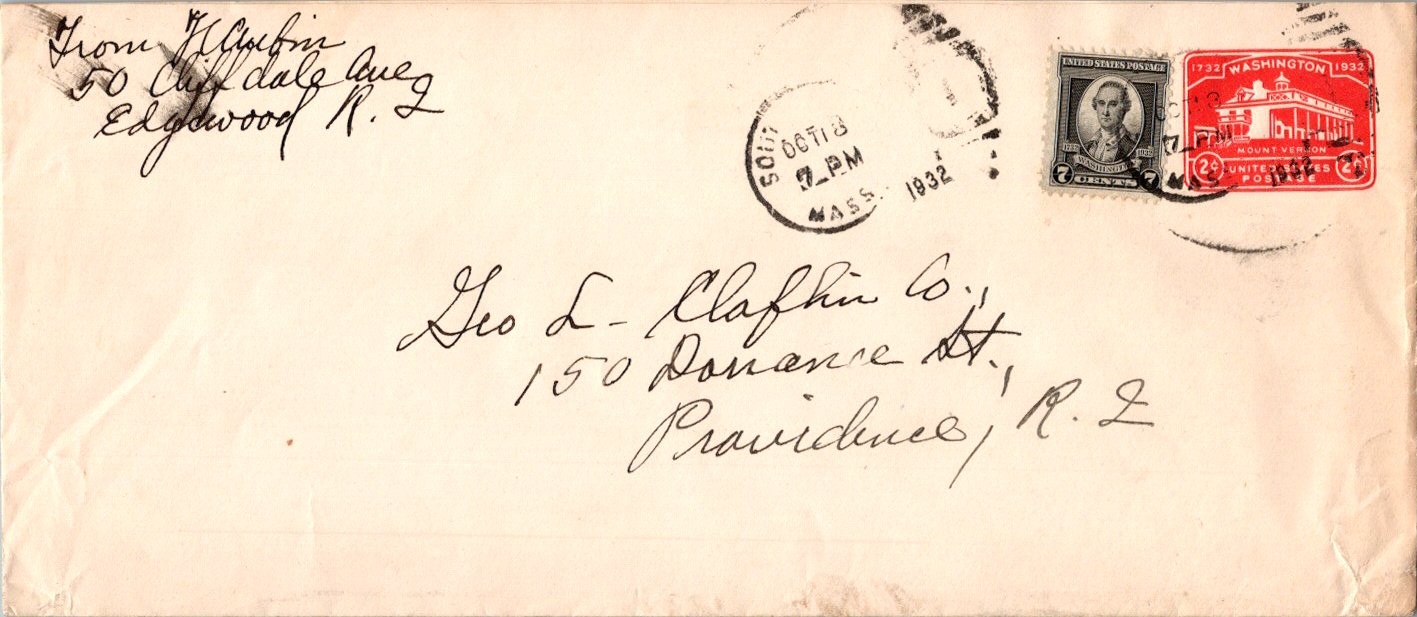 From
50 Cliffdale Ave
Edgewood R. I
Geo L- Claflin Co.,
150 Dorrance St.,
Providence, R. I
SOUT
OCT 18
7-PM
MASS.
1932
UNITED STATES POSTAGE
1732 1932
WASHINGTON
7 CENTS 7
1732 WASHINGTON 1932
MOUNT VERNON
2¢ UNITED STATES 2¢
POSTAGE
OCT 18
7-PM
MASS.
1932